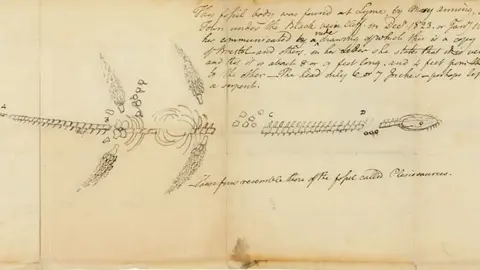 This fossil body was found at Lyme, by Mary Anning,
Town under the Black Ven Cliff, in Decr 1823. or Janr
has communicated by a rude drawing of which this is a copy
of Bristol and others. in her letter she states that
and that it is about 8 or 9 feet long, and 4 feet from
to the other — The head only 6 or 7 Inches — perhaps
a serpent.
A
D
— These fins resemble those of the fossil called Plesiosaurus.